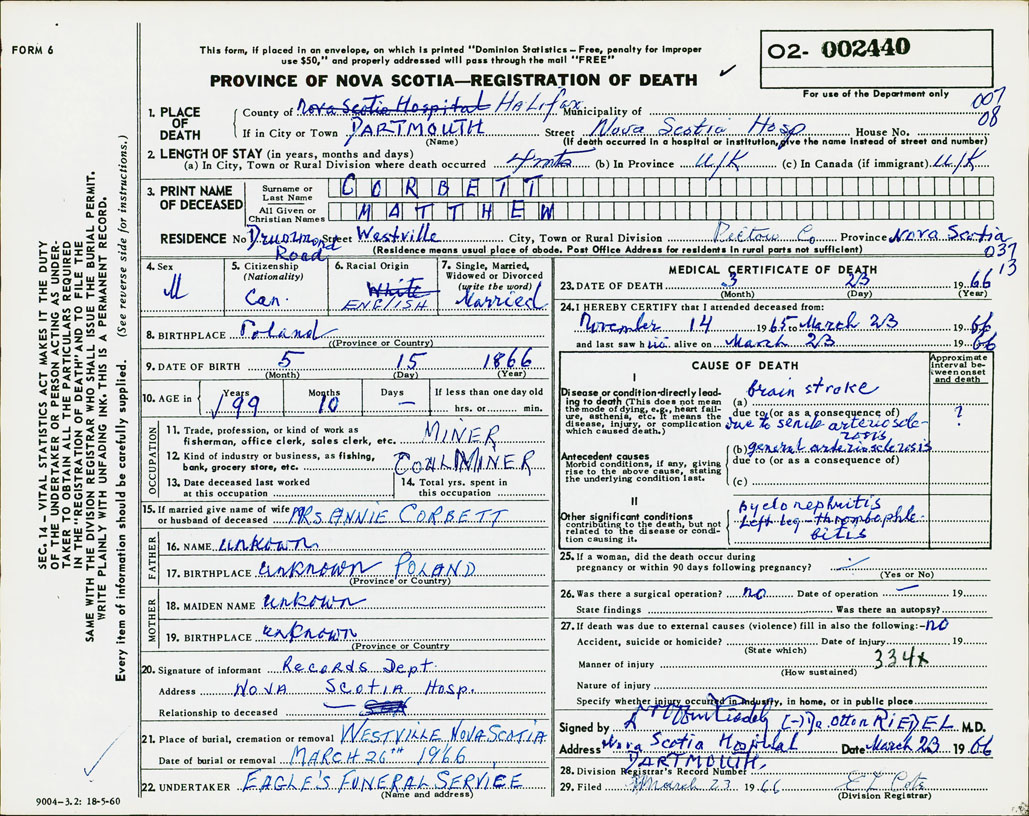 FORM 6
This form, if placed in an envelope, on which is printed "Dominion Statistics – Free, penalty for improper
use $50," and properly addressed will pass through the mail "FREE"
PROVINCE OF NOVA SCOTIA—REGISTRATION OF DEATH
O2- 002440
For use of the Department only
007
08
1. PLACE OF DEATH
County of Nova Scotia Hospital HALifax Municipality of
If in City or Town DARTMOUTH Street Nova Scotia Hosp House No.
(Name) (If death occurred in a hospital or institution, give the name instead of street and number)
2. LENGTH OF STAY (in years, months and days)
(a) In City, Town or Rural Division where death occurred 4 mts (b) In Province U/K (c) In Canada (if immigrant) U/K
3. PRINT NAME OF DECEASED
Surname or Last Name CORBETT
All Given or Christian Names MATTHEW
RESIDENCE No Drummond Road Street Westville City, Town or Rural Division Pictou Co Province Nova Scotia
(Residence means usual place of abode. Post Office Address for residents in rural parts not sufficient)
037
13
4. Sex
M
5. Citizenship
(Nationality)
Can.
6. Racial Origin
White
ENGLISH
7. Single, Married,
Widowed or Divorced
(write the word)
Married
8. BIRTHPLACE Poland
(Province or Country)
9. DATE OF BIRTH 5 15 1866
(Month) (Day) (Year)
10. AGE in Years 99 Months 10 Days – If less than one day old
hrs. or min.
OCCUPATION
11. Trade, profession, or kind of work as
fisherman, office clerk, sales clerk, etc. MINER
12. Kind of industry or business, as fishing,
bank, grocery store, etc. COAL MINER
13. Date deceased last worked
at this occupation
14. Total yrs. spent in
this occupation
15. If married give name of wife
or husband of deceased MRS ANNIE CORBETT
FATHER
16. NAME unknown
17. BIRTHPLACE unknown POLAND
(Province or Country)
MOTHER
18. MAIDEN NAME unkown
19. BIRTHPLACE unknown
(Province or Country)
20. Signature of informant Records Dept.
Address NOVA SCOTIA Hosp.
Relationship to deceased –
21. Place of burial, cremation or removal WESTVILLE NOVA SCOTIA
Date of burial or removal MARCH 26TH 1966
22. UNDERTAKER EAGLE'S FUNERAL SERVICE
(Name and address)
9004–3.2: 18-5-60
MEDICAL CERTIFICATE OF DEATH
23. DATE OF DEATH 3 23 1966
(Month) (Day) (Year)
24. I HEREBY CERTIFY that I attended deceased from:
November 14 1965 to March 23 1966
and last saw him alive on March 23 1966
CAUSE OF DEATH
Approximate
interval be-
tween onset
and death
I
Disease or condition directly lead-
ing to death (This does not mean
the mode of dying, e.g., heart fail-
ure, asthenia, etc. It means the
disease, injury, or complication
which caused death.)
(a) brain stroke
due to (or as a consequence of) ?
due to senile arterioscle-
rosis
(b) general arteriosclerosis
due to (or as a consequence of)
(c)
Antecedent causes
Morbid conditions, if any, giving
rise to the above cause, stating
the underlying condition last.
II
Other significant conditions
contributing to the death, but not
related to the disease or condi-
tion causing it.
Pyelonephritis
Left leg thrombophle-
bitis
25. If a woman, did the death occur during
pregnancy or within 90 days following pregnancy?
(Yes or No)
26. Was there a surgical operation? no Date of operation – 19
State findings Was there an autopsy?
27. If death was due to external causes (violence) fill in also the following:- no
Accident, suicide or homicide? Date of injury 19
(State which)
Manner of injury 334x
(How sustained)
Nature of injury
Specify whether injury occurred in industry, in home, or in public place
Signed by (-) Dr. Otto RIEDEL M.D.
Address Nova Scotia Hospital Date March 23 1966
DARTMOUTH.
28. Division Registrar's Record Number
29. Filed March 23 1966
(Division Registrar)
SEC. 14 – VITAL STATISTICS ACT MAKES IT THE DUTY
OF THE UNDERTAKER OR PERSON ACTING AS UNDER-
TAKER TO OBTAIN ALL THE PARTICULARS REQUIRED
IN THE "REGISTRATION OF DEATH" AND TO FILE THE
SAME WITH THE DIVISION REGISTRAR WHO SHALL ISSUE THE BURIAL PERMIT.
WRITE PLAINLY WITH UNFADING INK. THIS IS A PERMANENT RECORD.
Every item of information should be carefully supplied. (See reverse side for instructions.)